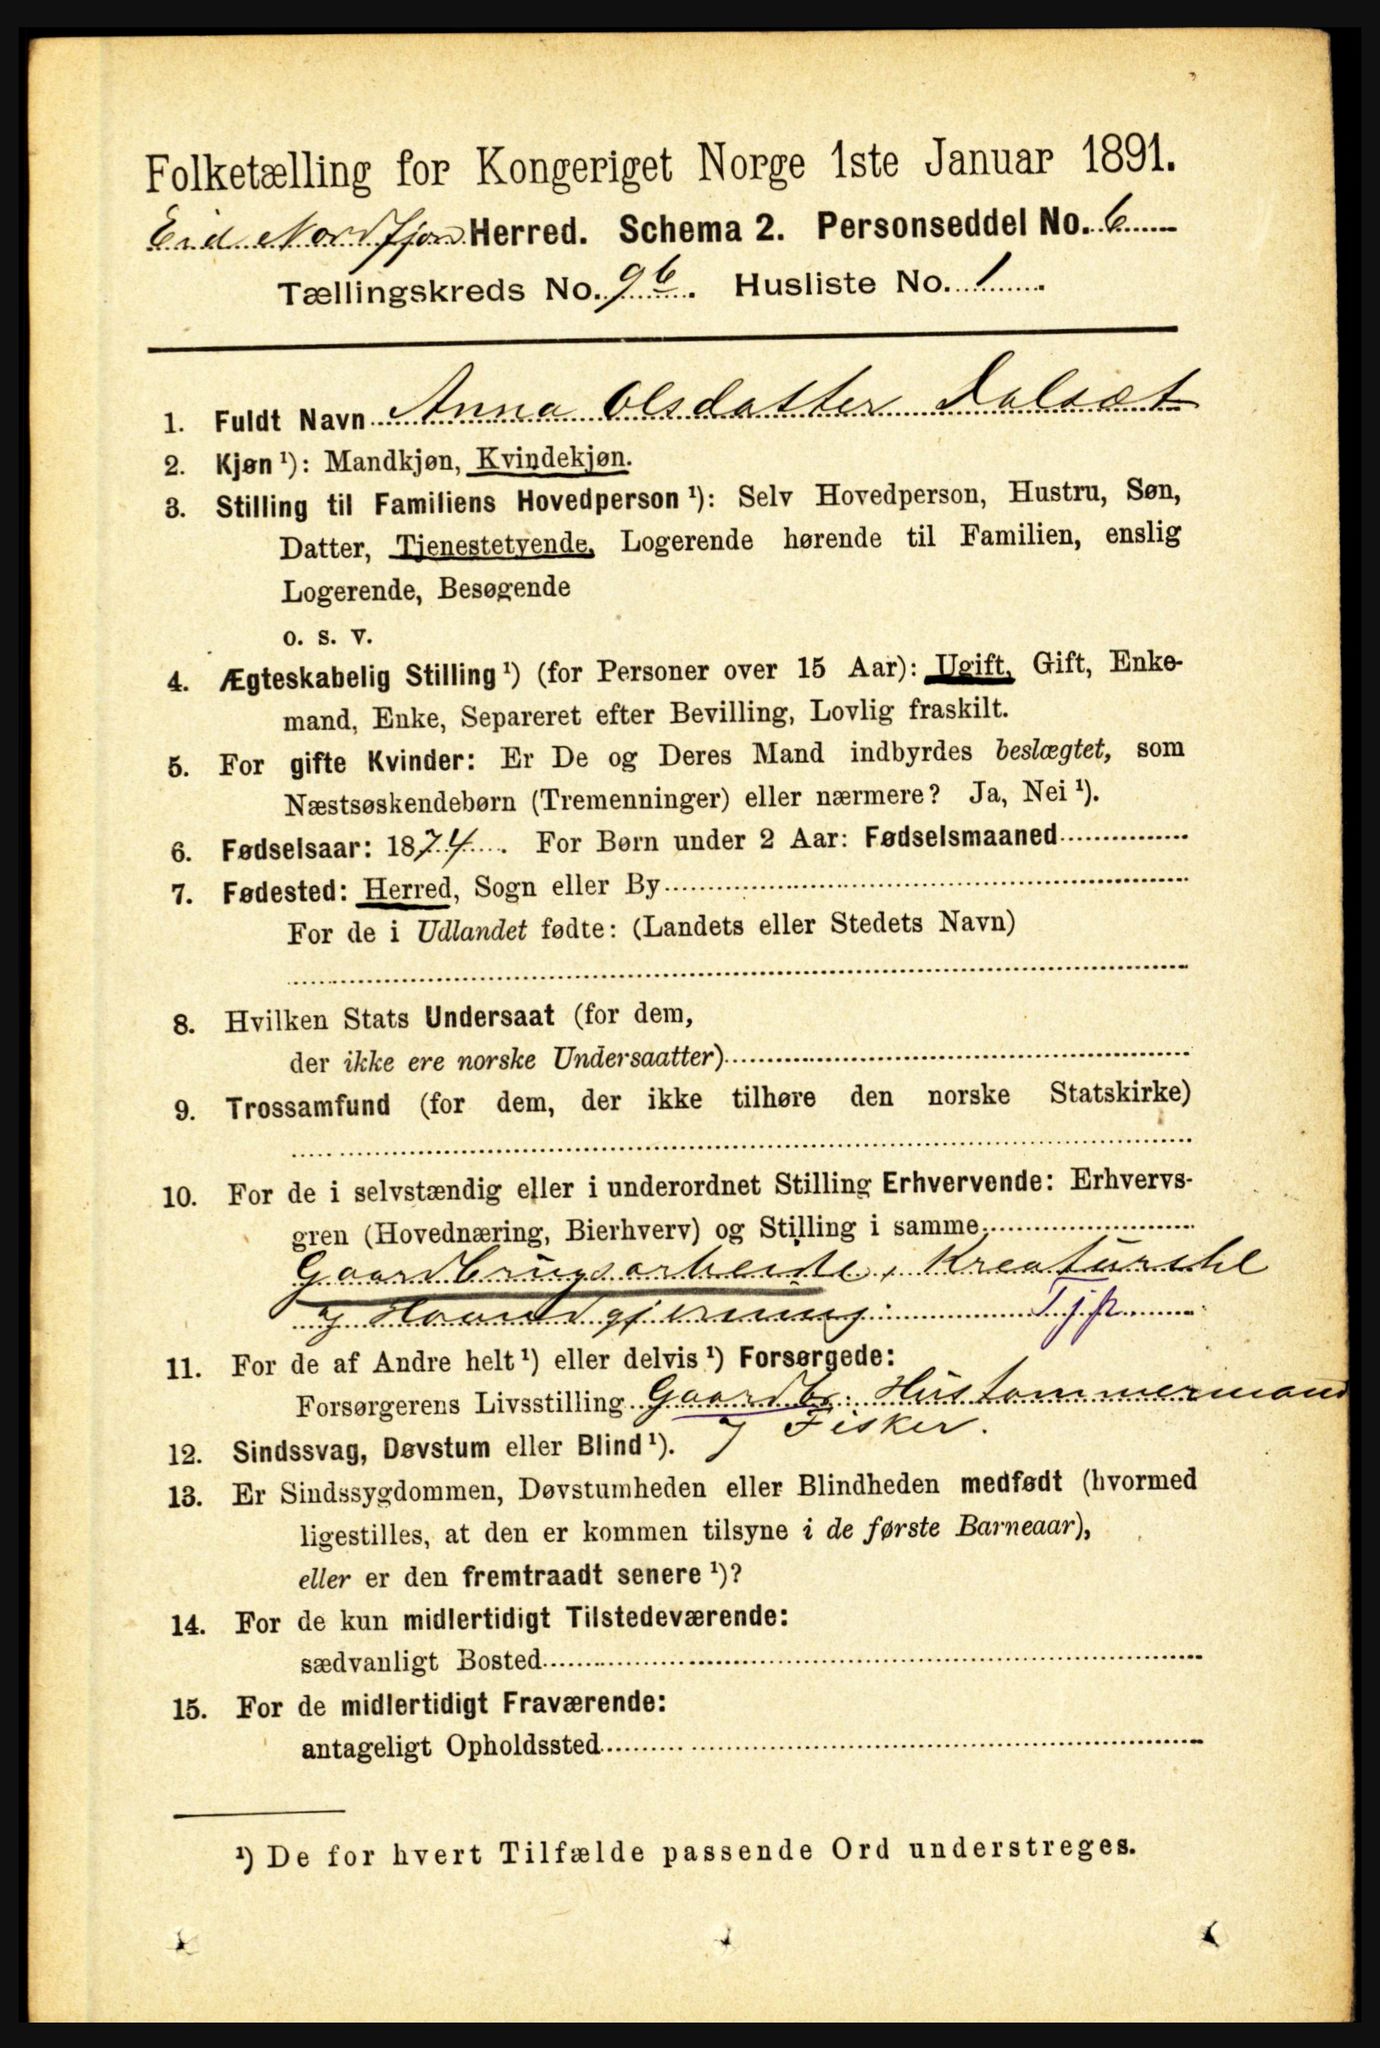 Folketælling for Kongeriget Norge 1ste Januar 1891.
Eid Nordfjord Herred. Schema 2. Personseddel No. 6
Tællingskreds No. 9b. Husliste No. 1
1. Fuldt Navn Anna Olsdatter Dalsæt
2. Kjøn ¹): Mandkjøn, Kvindekjøn.
3. Stilling til Familiens Hovedperson ¹): Selv Hovedperson, Hustru, Søn,
Datter, Tjenestetyende, Logerende hørende til Familien, enslig
Logerende, Besøgende
o. s. v.
4. Ægteskabelig Stilling ¹) (for Personer over 15 Aar): Ugift, Gift, Enke-
mand, Enke, Separeret efter Bevilling, Lovlig fraskilt.
5. For gifte Kvinder: Er De og Deres Mand indbyrdes beslægtet, som
Næstsøskendebørn (Tremenninger) eller nærmere? Ja, Nei ¹).
6. Fødselsaar: 1874. For Børn under 2 Aar: Fødselsmaaned
7. Fødested: Herred, Sogn eller By
For de i Udlandet fødte: (Landets eller Stedets Navn)
8. Hvilken Stats Undersaat (for dem,
der ikke ere norske Undersaatter)
9. Trossamfund (for dem, der ikke tilhøre den norske Statskirke)
10. For de i selvstændig eller i underordnet Stilling Erhvervende: Erhvervs-
gren (Hovednæring, Bierhverv) og Stilling i samme
Gaardbrugsarbeide, Kreaturstel
og Haandgjerning. Tjp
11. For de af Andre helt ¹) eller delvis ¹) Forsørgede:
Forsørgerens Livsstilling Gaardbr. Hustømmermand
og Fisker.
12. Sindssvag, Døvstum eller Blind ¹).
13. Er Sindssygdommen, Døvstumheden eller Blindheden medfødt (hvormed
ligestilles, at den er kommen tilsyne i de første Barneaar),
eller er den fremtraadt senere ¹)?
14. For de kun midlertidigt Tilstedeværende:
sædvanligt Bosted
15. For de midlertidigt Fraværende:
antageligt Opholdssted
¹) De for hvert Tilfælde passende Ord understreges.